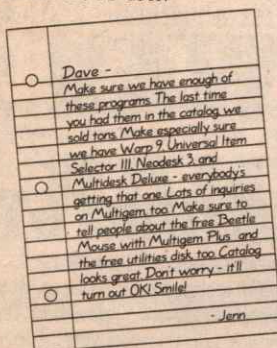 Dave -
Make sure we have enough of
these programs. The last time
you had them in the catalog we
sold tons. Make especially sure
we have Warp 9, Universal Item
Selector III, Neodesk 3, and
Multidesk Deluxe - everybody's
getting that one. Lots of inquiries
on Multigem too. Make sure to
tell people about the free Beetle
Mouse with Multigem Plus and
the free utilities disk, too. Catalog
looks great. Don't worry - it'll
turn out OK! Smile!
- Jenn